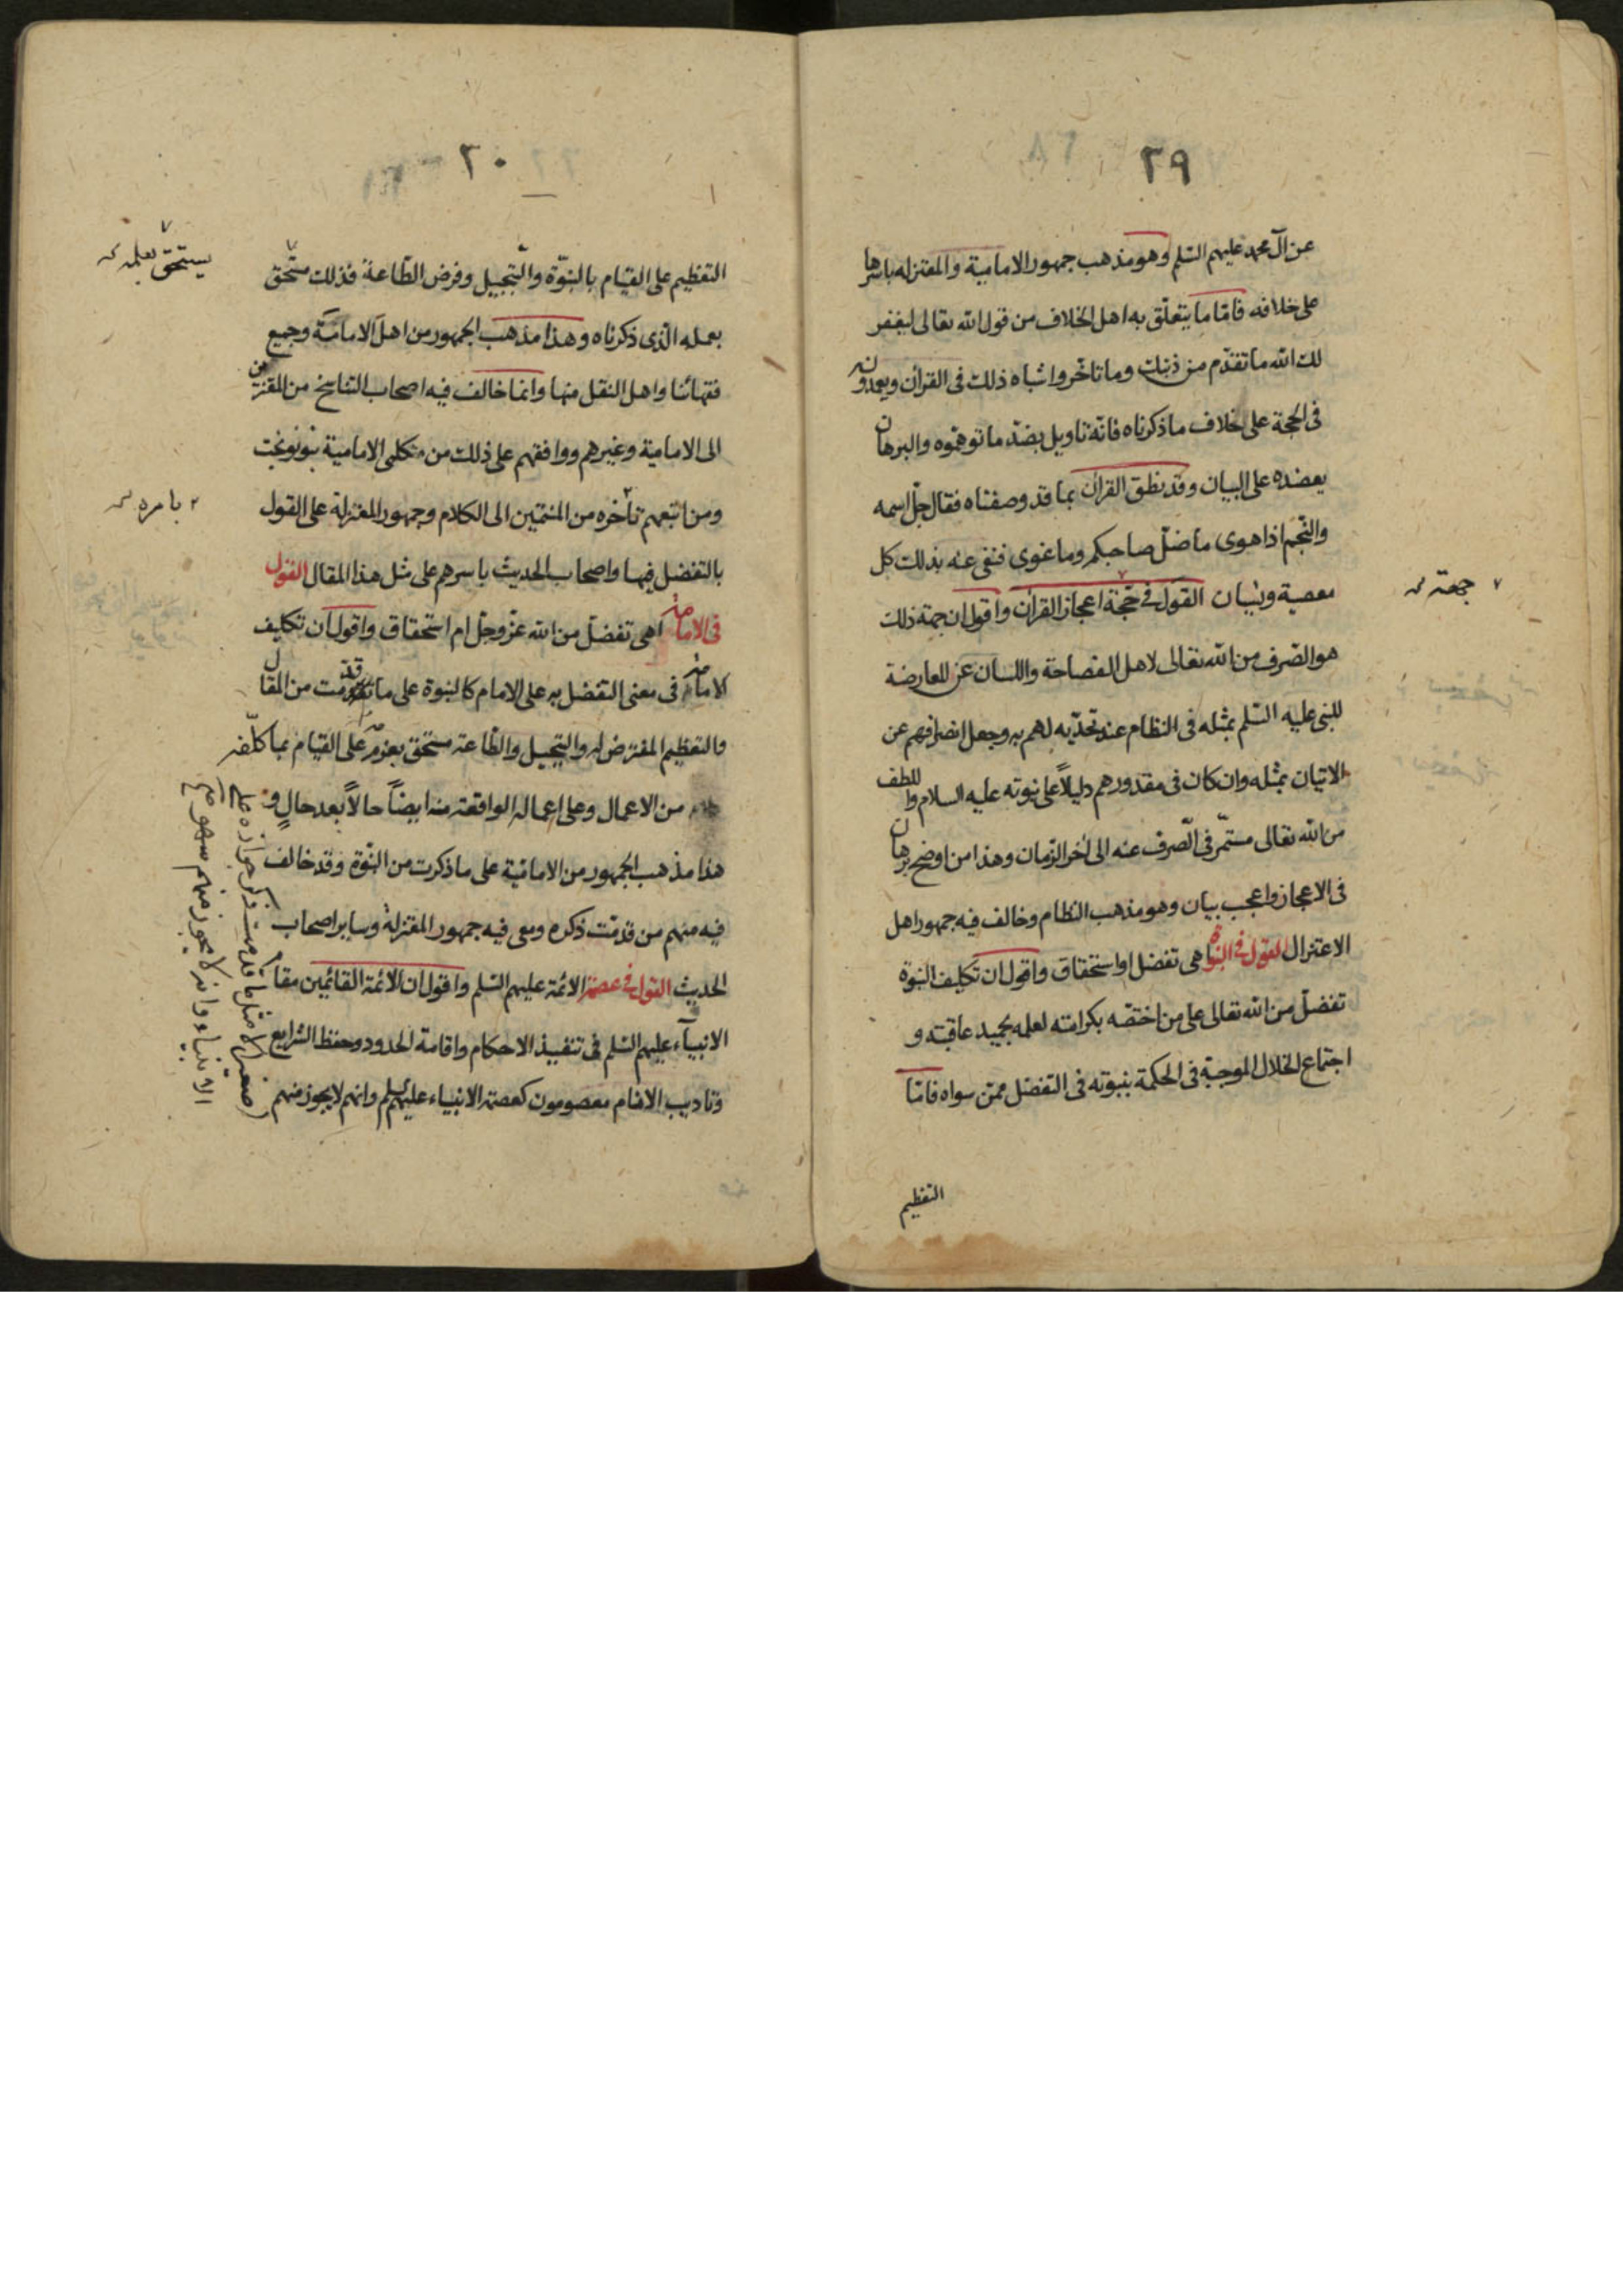 ٢٩
عن آل محمد عليهم السّلم وهو مذهب جمهور الامامية والمعتزله باسرها
على خلافه فامّا ما يتعلّق به اهل الخلاف من قول الله تعالى ليغفر
لك الله ما تقدّم من ذنبك وما تاخّر واشباه ذلك فى القرآن ويعمدونه
فى الحجة على خلاف ما ذكرناه فانّه تاويل بضدّ ما توهّموه والبرهان
يعضده على البيان وقد نطق القرآن بما قد وصفناه فقال جلّ اسمه
والنّجم اذا هوى ما ضلّ صاحبكم وما غوى فنفى عنه بذلك كل
معصية ونسيان القول فى حجّة اعجاز القرآن واقول ان جهة ذلك
جهة
هو الصّرف من الله تعالى لاهل الفصاحة واللسان عن المعارضة
للنبى عليه السّلم بمثله فى النظام عند تحدّيه لهم به وجعل انصرافهم عن
الاتيان بمثله وان كان فى مقدورهم دليلاً على نبوته عليه السلام واللطف
من الله تعالى مستمّر فى الصّرف عنه الى آخر الزمان وهذا من اوضح برهان
فى الاعجاز واعجب بيان وهو مذهب النظام وخالف فيه جمهور اهل
الاعتزال القول فى النبوة اهى تفضل او استحقاق واقول ان تكليف النبوة
تفضلّ من الله تعالى على من اختصّه بكرامته لعلمه بحميد عاقبته و
اجتماع الخلال الموجبة فى الحكمة بنبوته فى التفضل ممّن سواه فامّا
التعظيم
٣٠
التعظيم على القيام بالنبوّة والتّبجيل وفرض الطّاعة فذلك مستّحق
يستحق بعلمه
بعمله الّذى ذكرناه وهذا مذهب الجمهور من اهل الامامّة وجميع
فقهائنا واهل النقل منها وانما خالف فيه اصحاب التناسخ من المعتزين
الى الامامية وغيرهم ووافقهم على ذلك من متكلمى الامامية بنونوبخت
ومن اتبعهم تأخره من المنتمين الى الكلام وجمهور المعتزلة على القول
بامره
بالتفضل فيها واصحاب الحديث باسرهم على مثل هذا المقال القول
فى الامامة اهى تفضلّ من الله عزّوجلّ ام استحقاق واقول ان تكليف
الامامة فى معنى التفضل به على الامام كالنبوة على ما قدّمت من المقال
والتعظيم المفترض له والتبجيل والطّاعة مستحّق بعزمه على القيام بما كلّفه
من الاعمال وعلى اعماله الواقعة منه ايضاً حالاً بعد حالٍ و
هذا مذهب الجمهور من الامامّية على ما ذكرت من النّبوة وقد خالف
فيه منهم من قدمّت ذكره ومعى فيه جمهور المعتزلة وساير اصحاب
الحديث القول فى عصمة الائمة عليهم السّلم واقول ان الائمّة القائمين مقام
الانبيآء عليهم السّلم فى تنفيذ الاحكام واقامة الحدود وحفظ الشرايع
وتاديب الانام معصومون كعصمة الانبياء عليهم السلم وانهم لايجوز منهم
صغيرة الا مثل ما قدمت ذكر جوازه على
الانبياء وانه لا يجوز منهم سهو